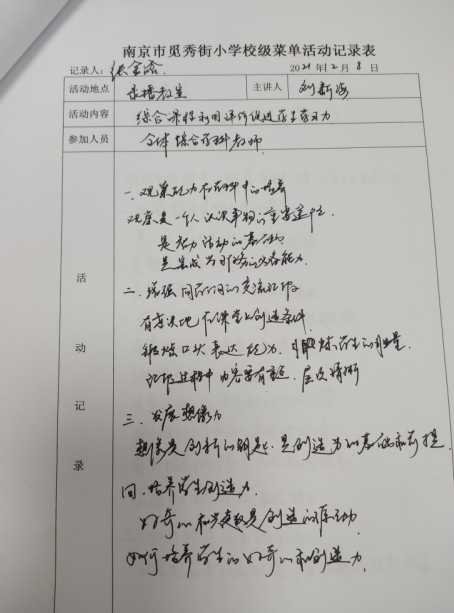 南京市觅秀街小学校级菜单活动记录表
记录人：张金洛 2021年12月8日
活动地点 录播教室 主讲人 刘新海
活动内容 综合课程利用评价促进学生学习力
参加人员 全体综合学科教师
活动记录
一、观察能力在学科中的培养
观察是一个人认识事物的重要途径
是智力活动的基础
是完成学习任务的必备能力
二、增强同学们的交流
有意识地在课堂上创造条件
锻炼口头表达能力
过程中内容要有 层次清晰
三、发展想像力
想像是创新的钥匙，是创造力的基础和前提
四、培养学生创造力
好奇心和兴趣是创造的原动力
如何培养学生的好奇心和创造力